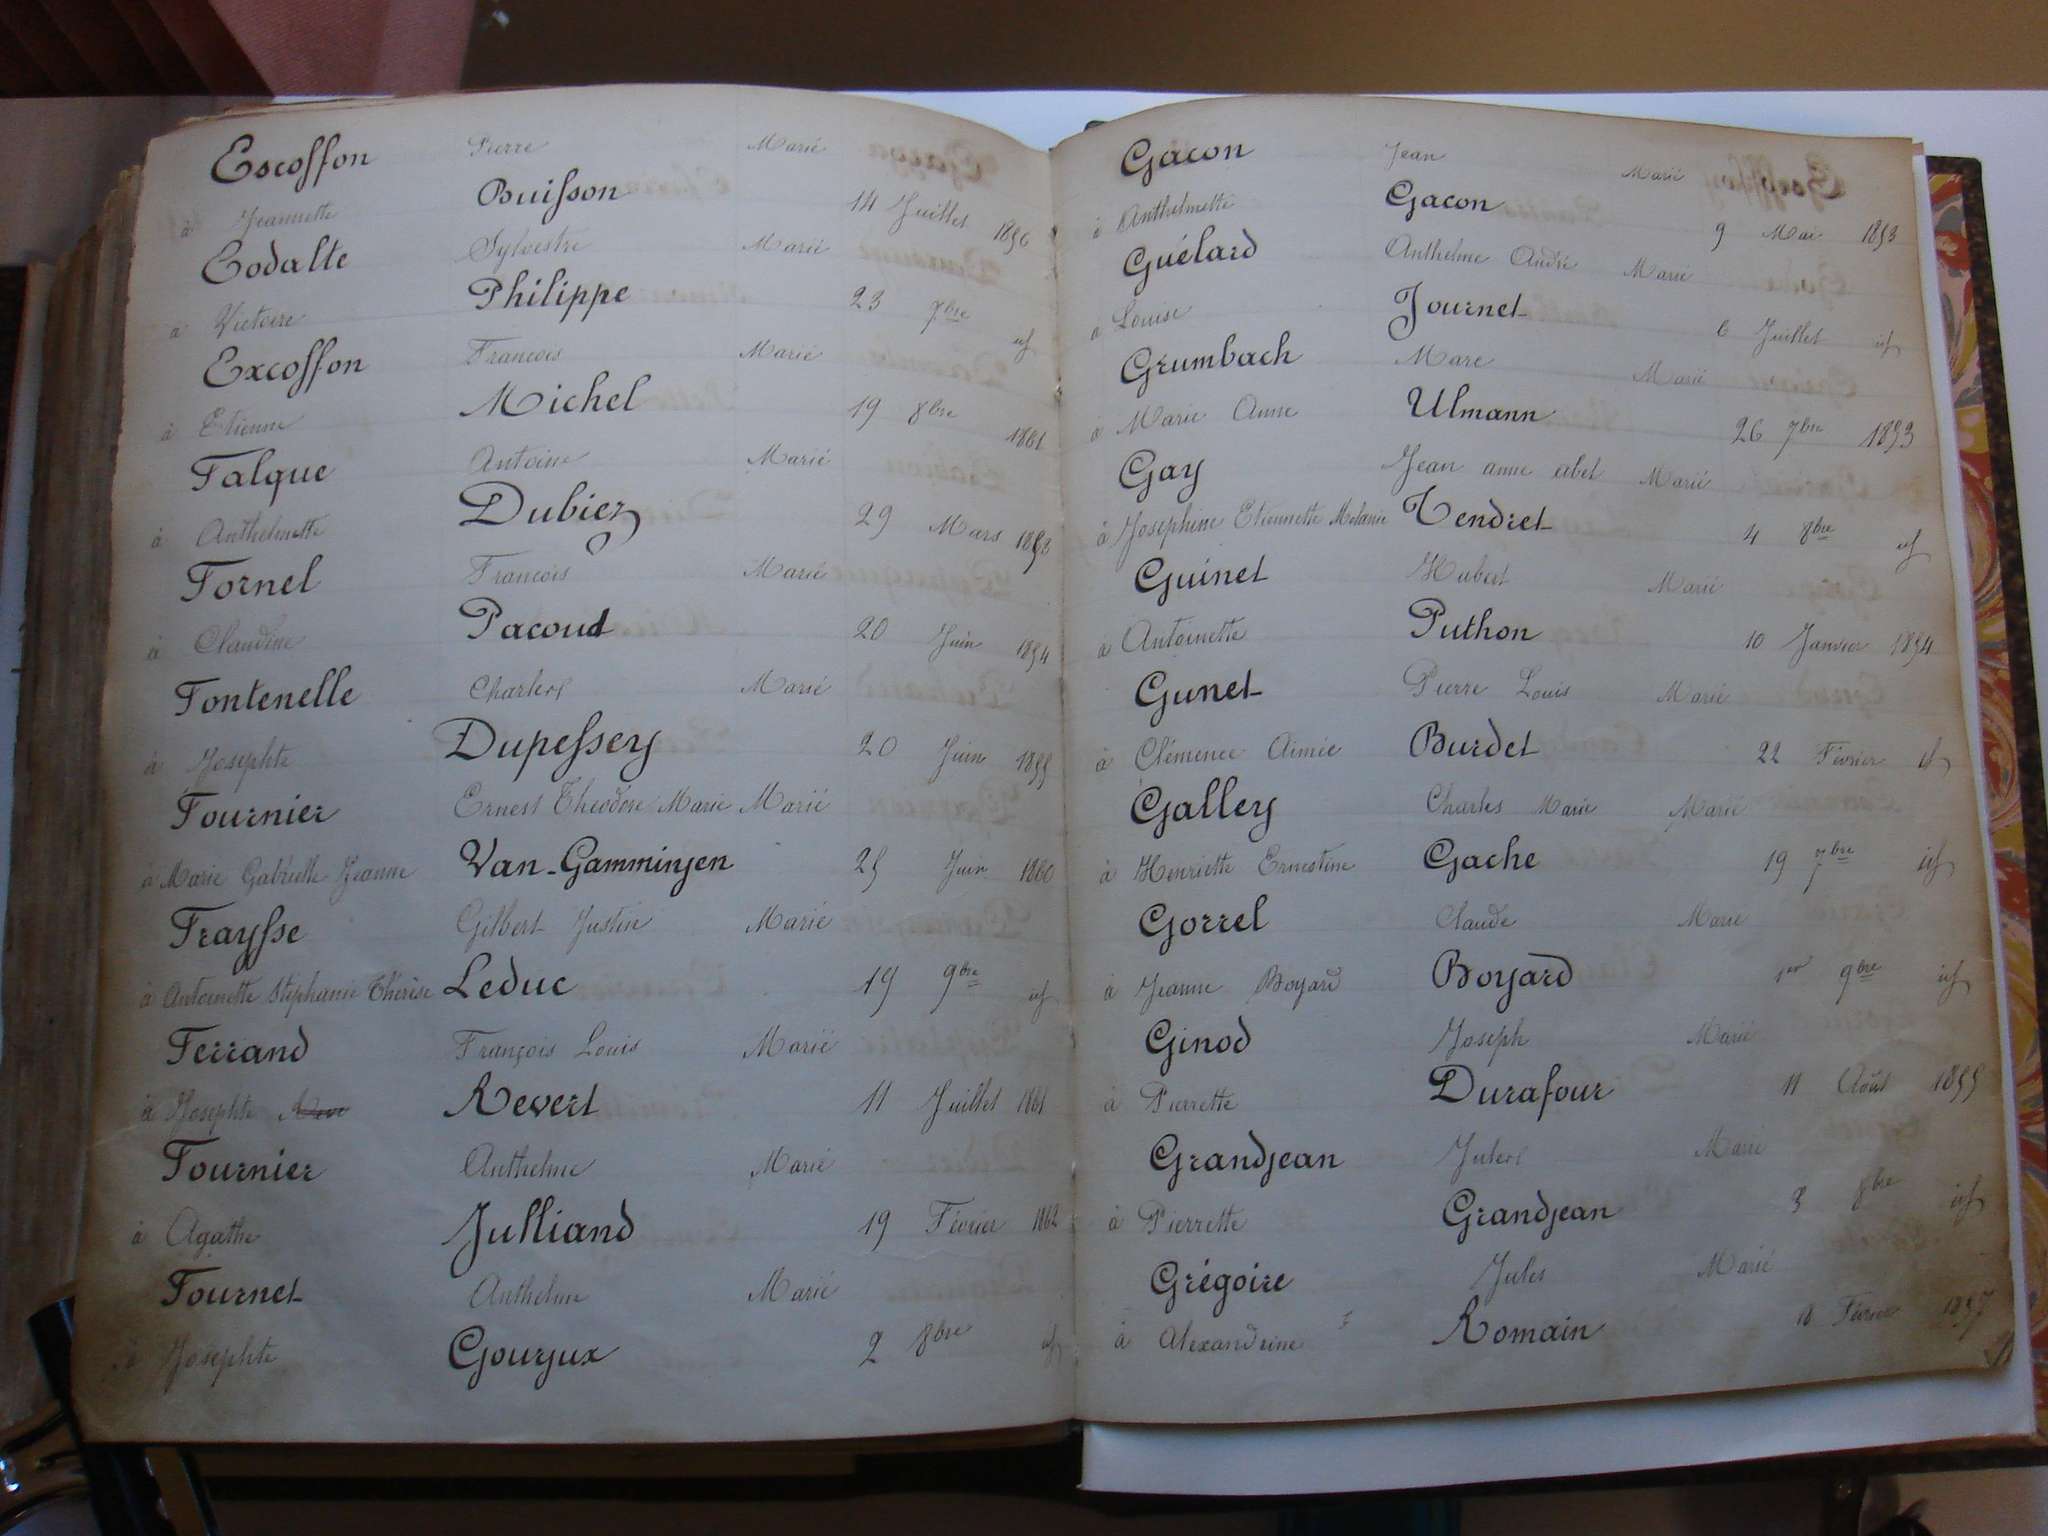 Escoffon Pierre Marié
à Jeannette Buisson 14 Juillet 1856
Codalte Sylvestre Marié
à Victoire Philippe 23 7bre id
Excoffon François Marié
à Etienne Michel 19 8bre 1861
Falque Antoine Marié
à Anthelmette Dubiez 29 Mars 1853
Fornel François Marié
à Claudine Pacoud 20 Juin 1854
Fontenelle Charles Marié
à Josephte Dupessey 20 Juin 1855
Fournier Ernest Théodore Marie Marié
à Marie Gabrielle Jeanne Van-Gamminjen 25 Juin 1860
Fraysse Gilbert Justin Marié
à Antoinette Stéphanie Thérèse Leduc 19 9bre id
Ferrand François Louis Marié
à Josephte Revert 11 Juillet 1861
Fournier Anthelme Marié
à Agathe Julliand 19 Février 1862
Fournet Anthelme Marié
à Josephte Gourjux 2 8bre id
Gacon Jean Marié
à Anthelmette Gacon 9 Mai 1853
Guélard Anthelme André Marié
à Louise Journet 6 Juillet id
Grumbach Marc Marié
à Marie Anne Ulmann 26 7bre 1853
Gay Jean anne abel Marié
à Josephine Etiennette Mélanie Tendret 4 8bre id
Guinet Hubert Marié
à Antoinette Puthon 10 Janvier 1854
Gunet Pierre Louis Marié
à Clémence Aimée Burdet 22 Février id
Galley Charles Marie Marié
à Henriette Ernestine Gache 19 7bre id
Gorrel Claude Marié
à Jeanne Boyard Boyard 1er 9bre id
Ginod Joseph Marié
à Pierrette Durafour 11 Août 1855
Grandjean Jules Marié
à Pierrette Grandjean 3 8bre id
Grégoire Jules Marié
à Alexandrine Romain Février 1857